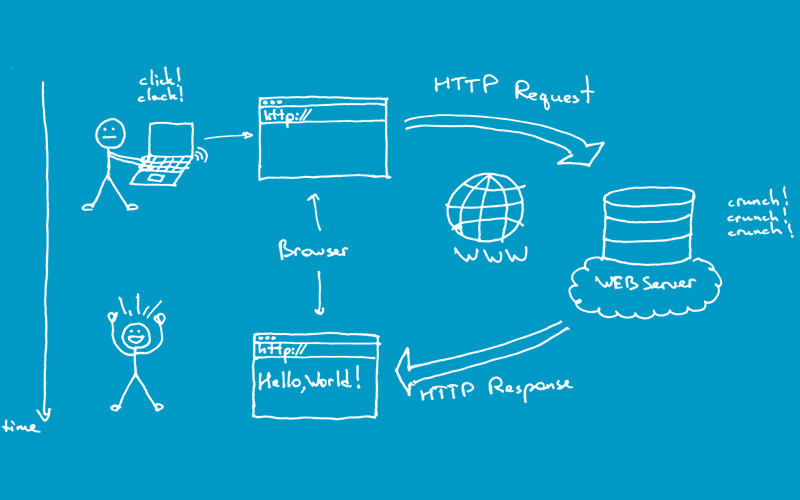 click!
clack!
http://
HTTP Request
WWW
crunch!
crunch!
crunch!
Browser
WEB Server
http://
Hello, World!
HTTP Response
time